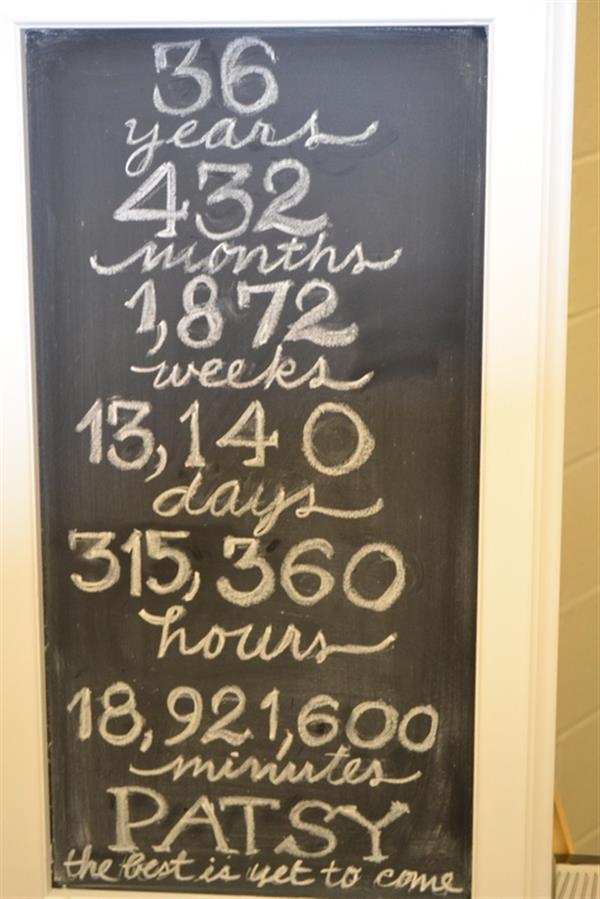 36
years
432
months
1,872
weeks
13,140
days
315,360
hours
18,921,600
minutes
PATSY
the best is yet to come